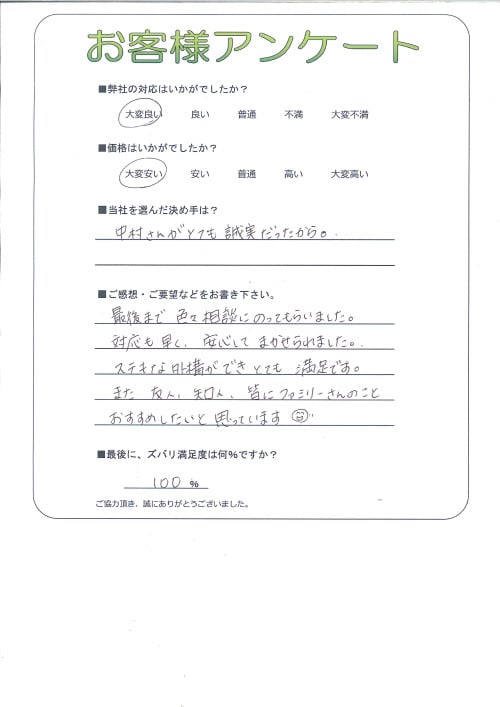 お客様アンケート
■弊社の対応はいかがでしたか?
大変良い 良い 普通 不満 大変不満
■価格はいかがでしたか?
大変安い 安い 普通 高い 大変高い
■当社を選んだ決め手は?
中村さんがとても誠実だったから。
■ご感想・ご要望などをお書き下さい。
最後まで色々相談にのってもらいました。
対応も早く、安心してまかせられました。
ステキな外構ができとても満足です。
また友人、知人、皆にファミリーさんのこと
おすすめしたいと思っています
■最後に、ズバリ満足度は何%ですか?
100 %
ご協力頂き、誠にありがとうございました。